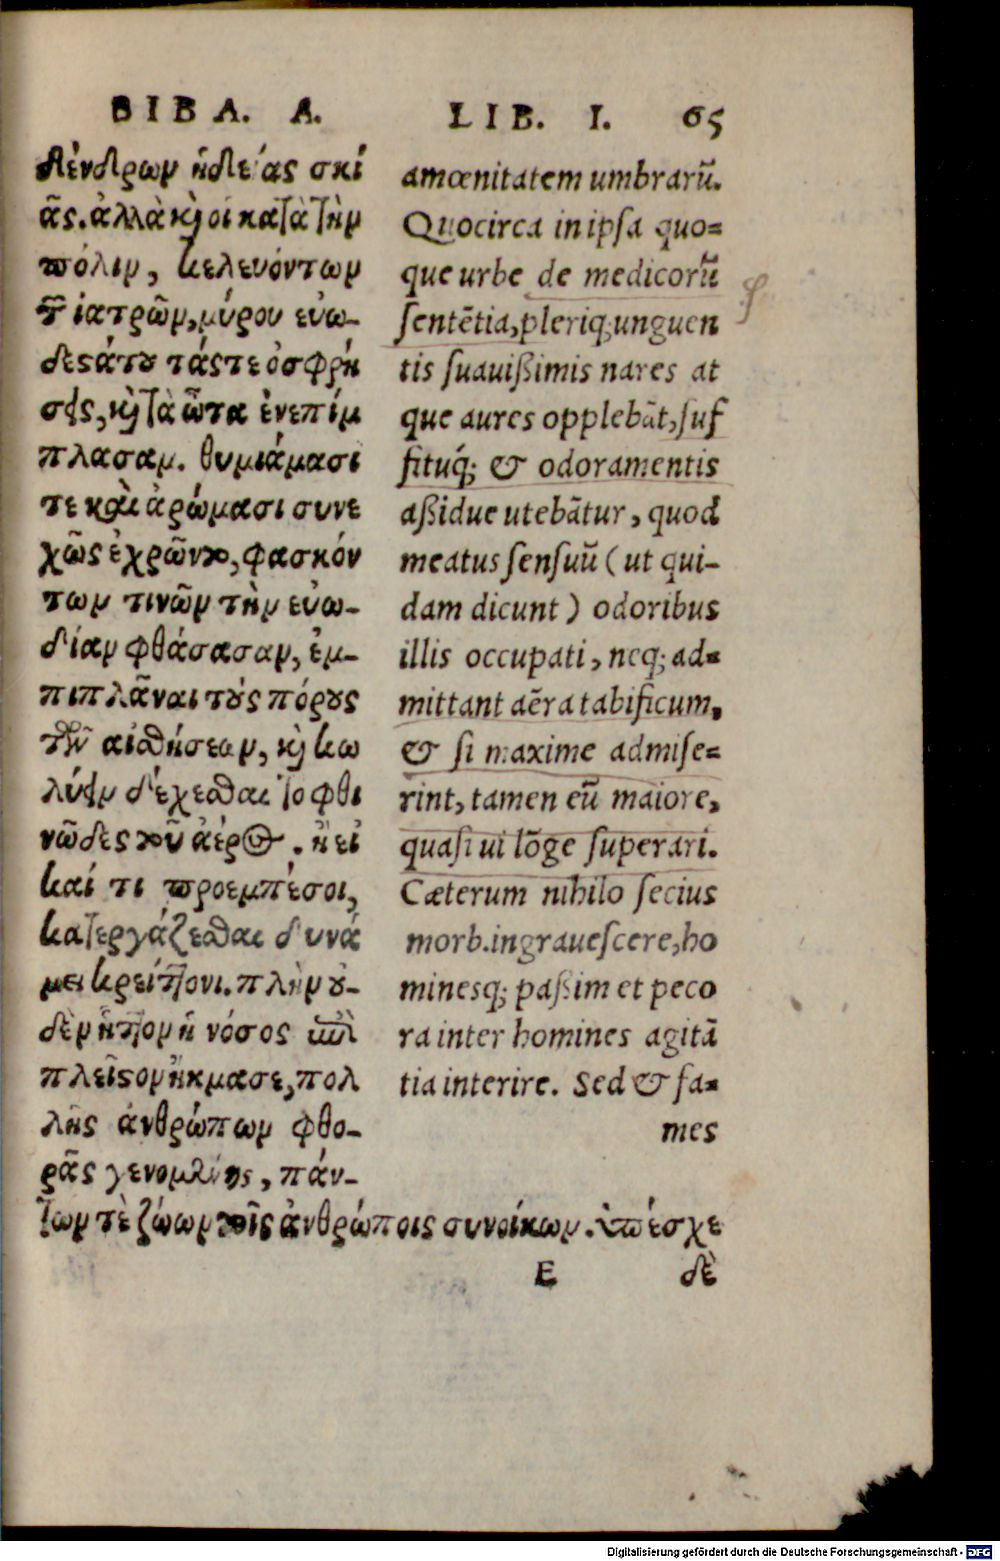 ΒΙΒΛ. Α.
δένδρων ἡδείας σκι
ᾶς. ἀλλὰ κὶ οἱ κατὰ τὴν
πόλιν, κελευόντων
τῶν ἰατρῶν, μύρου εὐω-
δεςάτου τάς τε ὀσφρή
σεις, κὶ τὰ ὦτα ἐνεπίμ
πλασαν. θυμιάμασι
τε καὶ ἀρώμασι συνε
χῶς ἐχρῶντο, φασκόν
των τινῶν τὴν εὐω-
δίαν φθάσασαν, ἐμ-
πιπλᾶναι τοὺς πόρους
τῶν αἰσθήσεων, κὶ κω
λύειν δέχεσθαι τὸ φθι
νῶδες τοῦ ἀέρος. ἢ εἰ
καί τι προεμπέσοι,
κατεργάζεσθαι δυνά
μει κρείττονι. πλὴν οὐ-
δὲν ἧττον ἡ νόσος ἐπὶ
πλεῖςον ἤκμασε, πολ
λῆς ἀνθρώπων φθο-
ρᾶς γενομένης, πάν-
των τὲ ζώων τοῖς ἀνθρώποις συνοίκων. ἐπέσχε
δὲ
LIB. I. 65
amœnitatem umbrarũ.
Quocirca in ipſa quo=
que urbe de medicorũ
ſentẽtia, pleriq; unguen
tis ſuauißimis nares at
que aures opplebãt, ſuf
fituq́; & odoramentis
aßidue utebãtur, quod
meatus ſenſuũ (ut qui-
dam dicunt) odoribus
illis occupati, neq; ad=
mittant aẽra tabificum,
& ſi maxime admiſe=
rint, tamen eũ maiore,
quaſi ui lõge ſuperari.
Cæterum nihilo ſecius
morb. ingraueſcere, ho
minesq; paßim et peco
ra inter homines agitã
tia interire. Sed & fa=
mes
E
Digitalisierung gefördert durch die Deutsche Forschungsgemeinschaft - DFG